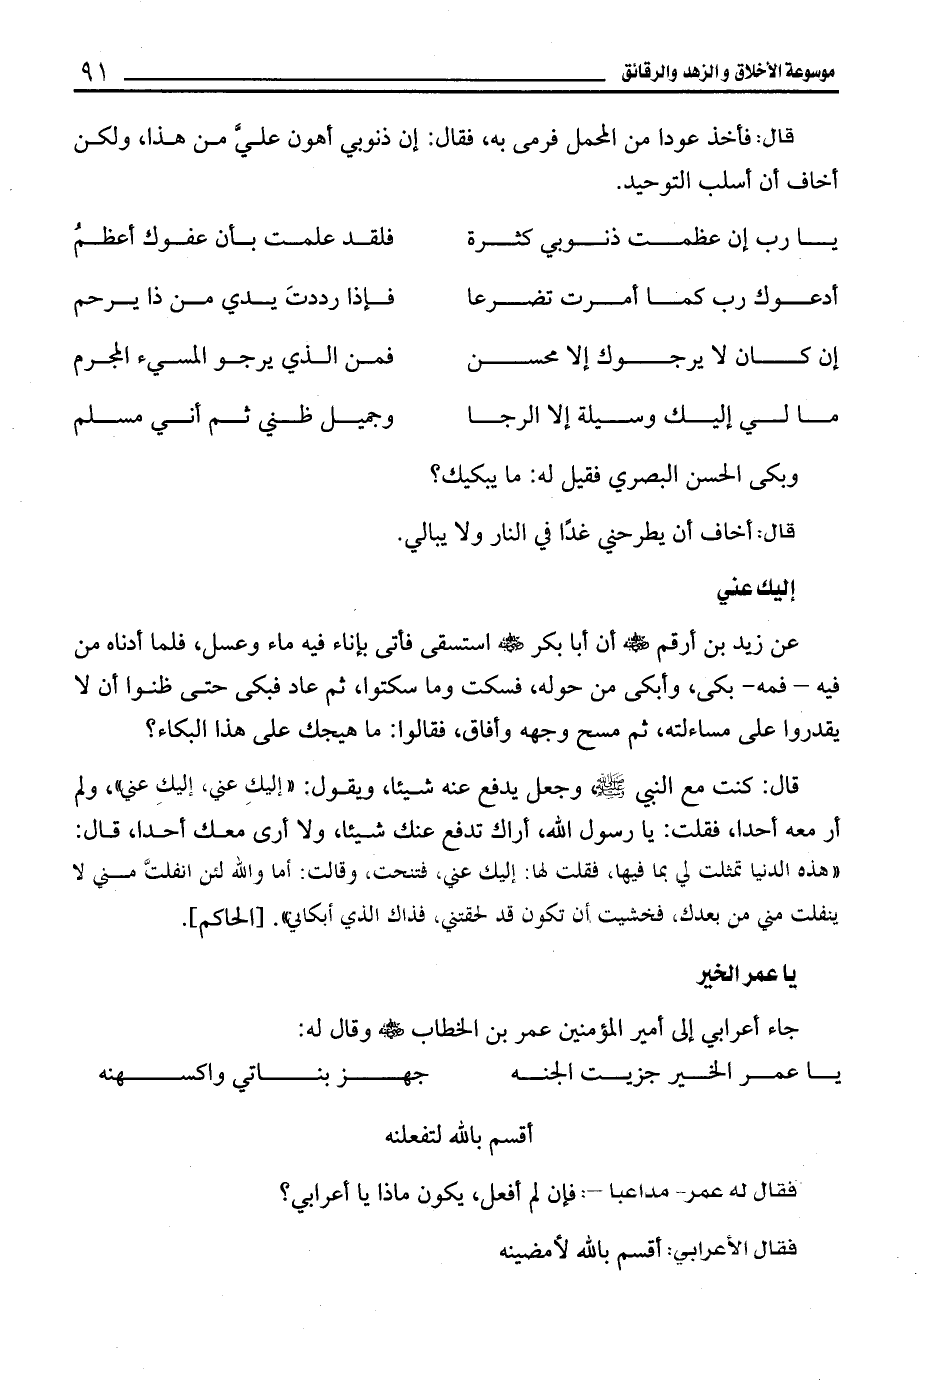 موسوعة الأخلاق والزهد والرقائق ٩١
قال: فأخذ عودا من المحمل فرمى به، فقال: إن ذنوبي أهون عليَّ من هذا، ولكن
أخاف أن أسلب التوحيد.
يا رب إن عظمت ذنوبي كثرة فلقد علمت بأن عفوك أعظمُ
أدعوك رب كما أمرت تضرعا فإذا رددتَ يدي من ذا يرحم
إن كان لا يرجوك إلا محسن فمن الذي يرجو المسيء المجرم
ما لي إليك وسيلة إلا الرجا وجميل ظني ثم أني مسلم
وبكى الحسن البصري فقيل له: ما يبكيك؟
قال: أخاف أن يطرحني غدًا في النار ولا يبالي.
إليك عني
عن زيد بن أرقم ﷺ أن أبا بكر ﷺ استسقى فأتى بإناء فيه ماء وعسل، فلما أدناه من
فيه – فمه- بكى، وأبكى من حوله، فسكت وما سكتوا، ثم عاد فبكى حتى ظنوا أن لا
يقدروا على مساءلته، ثم مسح وجهه وأفاق، فقالوا: ما هيجك على هذا البكاء؟
قال: كنت مع النبي ﷺ، وجعل يدفع عنه شيئا، ويقول: «إليك عني، إليك عني»، ولم
أر معه أحدا، فقلت: يا رسول الله، أراك تدفع عنك شيئا، ولا أرى معك أحدا، قال:
«هذه الدنيا تمثلت لي بما فيها، فقلت لها: إليك عني، فتنحت، وقالت: أما والله لئن انفلتَّ مني لا
ينفلت مني من بعدك، فخشيت أن تكون قد لحقتني، فذاك الذي أبكاني». [الحاكم].
يا عمر الخير
جاء أعرابي إلى أمير المؤمنين عمر بن الخطاب ﷺ وقال له:
يا عمر الخير جزيت الجنه جهز بناتي واكسهنه
أقسم بالله لتفعلنه
فقال له عمر- مداعبا –: فإن لم أفعل، يكون ماذا يا أعرابي؟
فقال الأعرابي: أقسم بالله لأمضينه